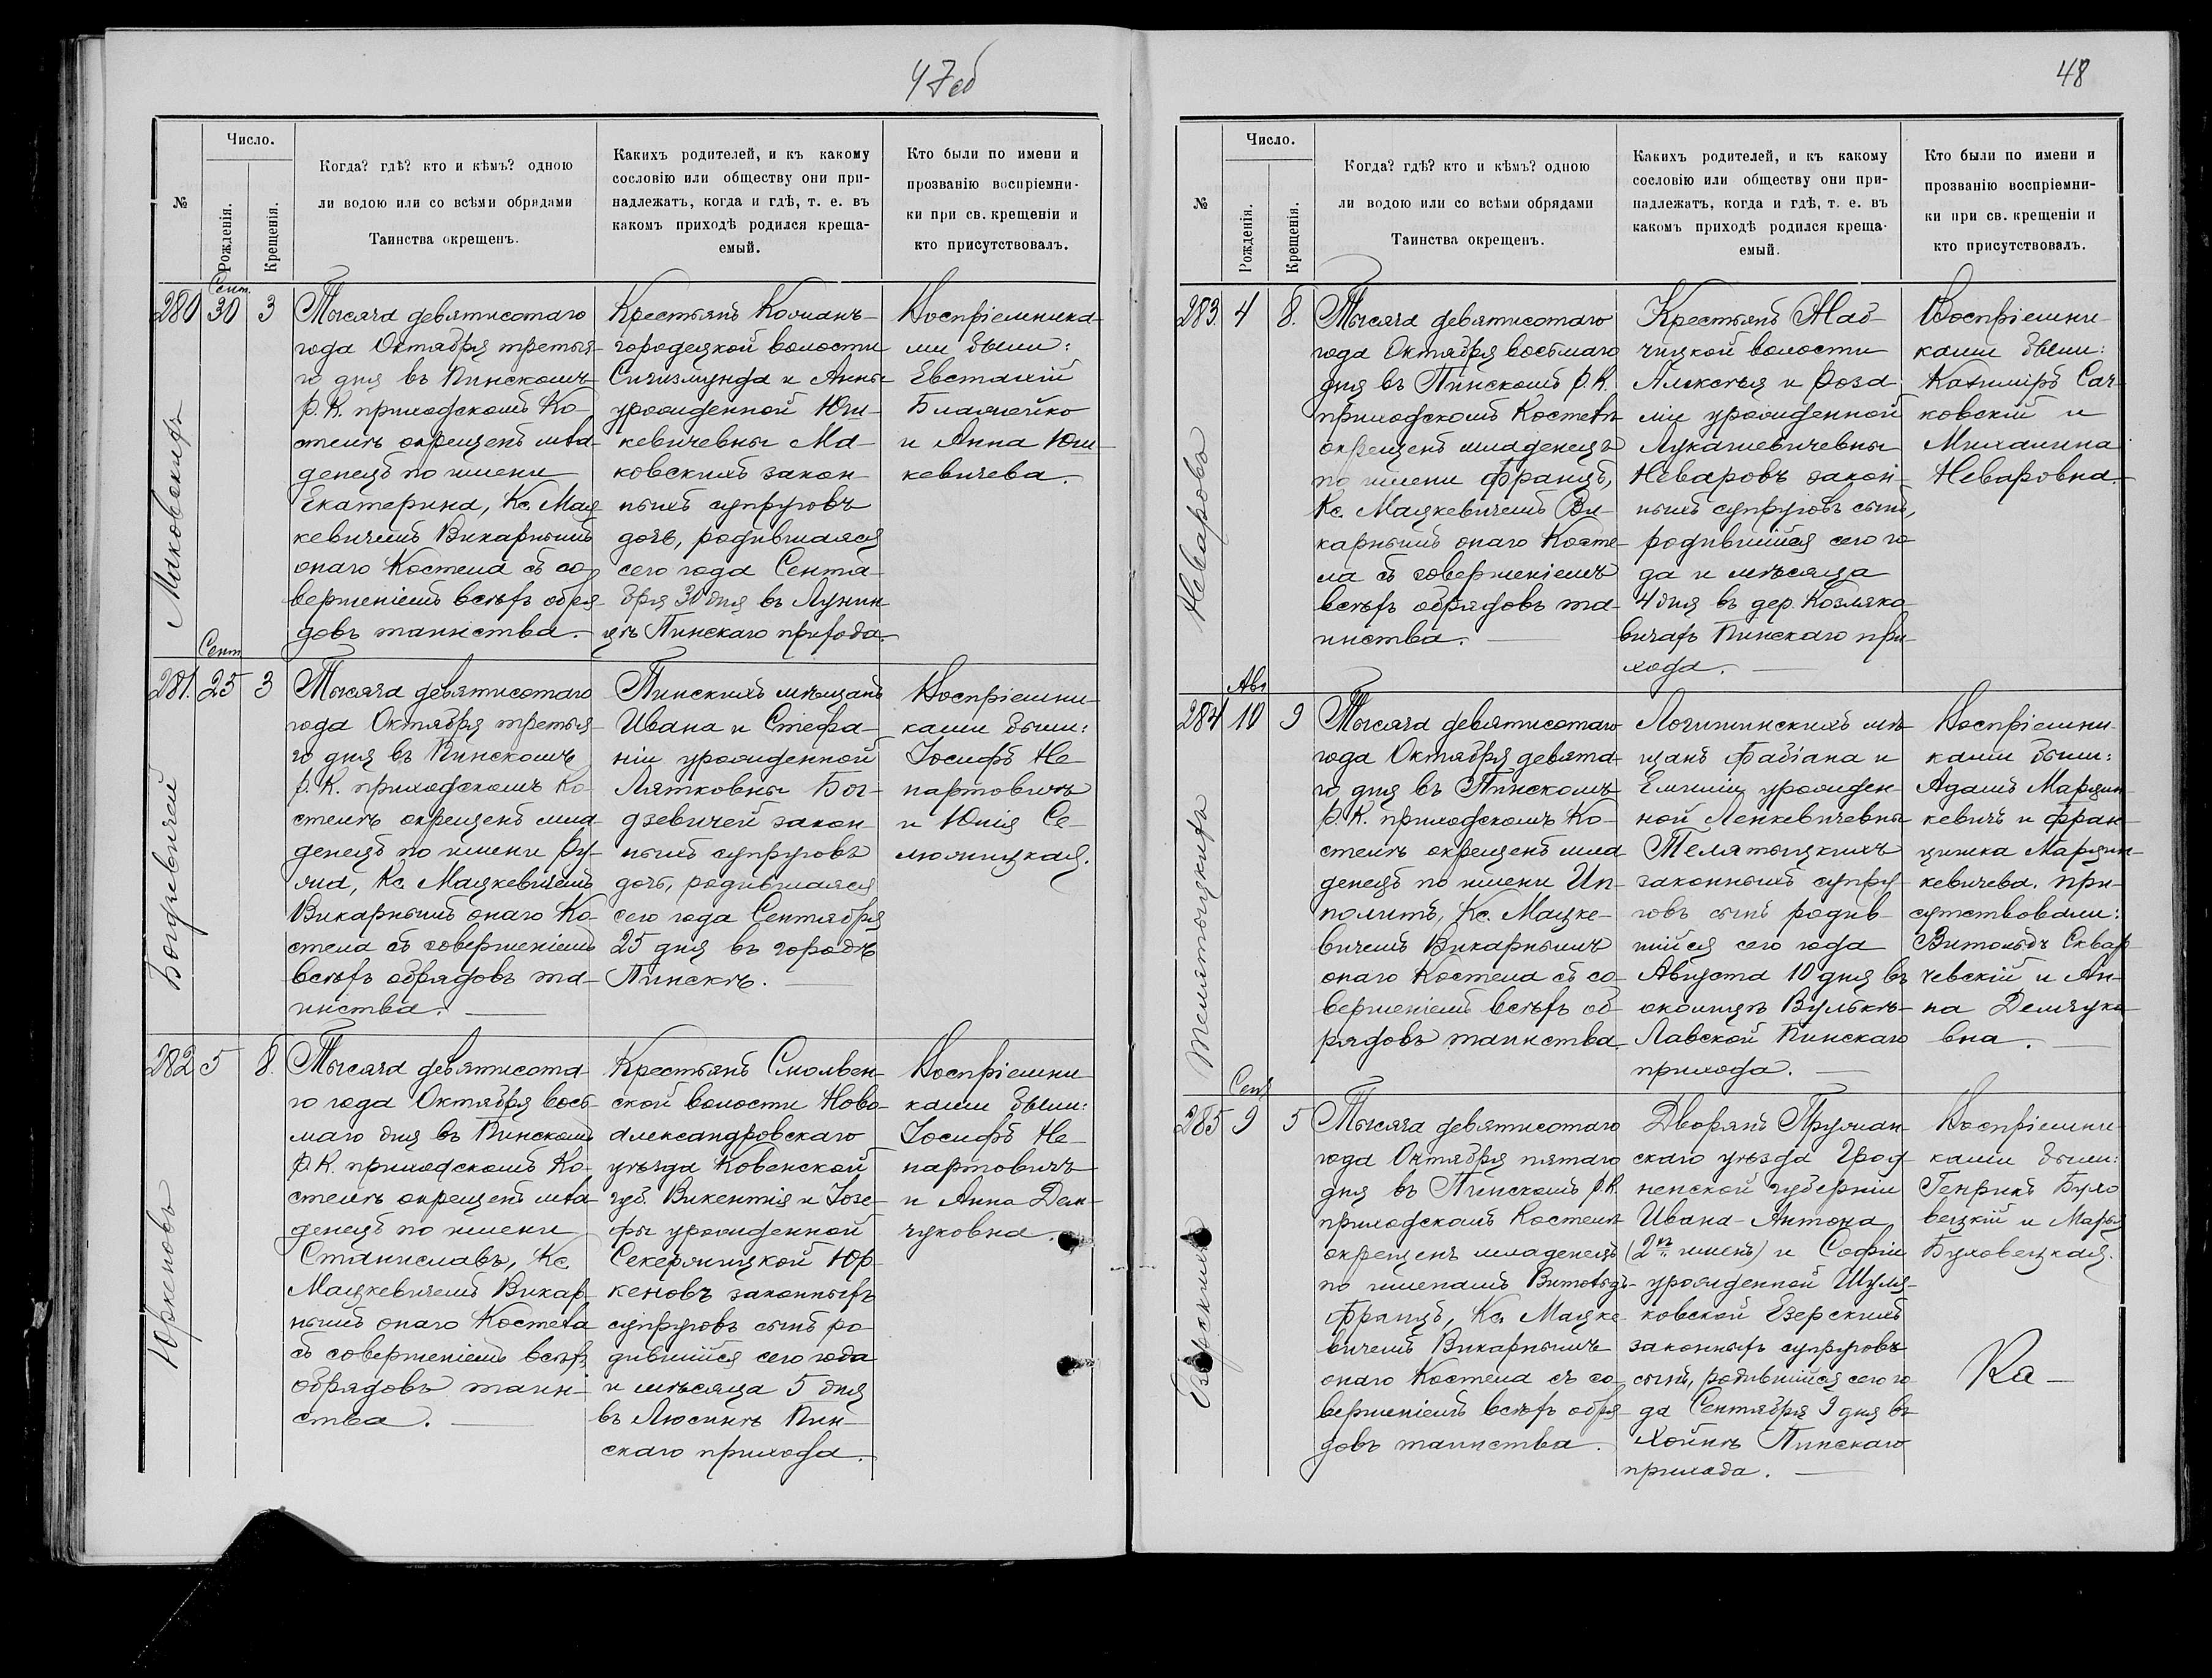 47об
№
Число.
Рожденія.
Крещенія.
Когда? гдѣ? кто и кѣмъ? одною
ли водою или со всѣми обрядами
Таинства окрещенъ.
Какихъ родителей, и къ какому
сословію или обществу они при-
надлежатъ, когда и гдѣ, т. е. въ
какомъ приходѣ родился креща-
емый.
Кто были по имени и
прозванію воспріемни-
ки при св. крещеніи и
кто присутствовалъ.
280
Сент.
30
3
Маковскихъ
Тысяча девятисотаго
года Октября третья-
го дня въ Пинскомъ
Р. К. приходскомъ Ко-
стелѣ окрещенъ мла-
денецъ по имени
Екатерина, Кс. Мац-
кевичемъ Викарнымъ
онаго Костела съ со-
вершеніемъ всѣхъ обря-
довъ таинства.
Крестьянъ Кожанъ-
городецкой волости
Сигизмунда и Анны
урожденной Юш-
кевичевны Ма-
ковскихъ закон-
ныхъ супруговъ
дочь, родившаяся
сего года Сентя-
бря 30 дня въ Лунин-
цѣ Пинскаго прихода.
Воспріемника-
ми были:
Евстахій
Блажейко
и Анна Юш-
кевичева.
281.
Сент
25
3
Богдзевичей
Тысяча девятисотаго
года Октября третья-
го дня въ Пинскомъ
Р. К. приходскомъ Ко-
стелѣ окрещенъ мла-
денецъ по имени Ру-
жа, Кс. Мацкевичемъ
Викарнымъ онаго Ко-
стела съ совершеніемъ
всѣхъ обрядовъ та-
инства.
Пинскихъ мѣщанъ
Ивана и Стефа-
ніи урожденной
Лятковны Бог-
дзевичей закон-
ныхъ супруговъ
дочь, родившаяся
сего года Сентября
25 дня въ городѣ
Пинскѣ.
Воспріемни-
ками были:
Іосифъ Не-
партовичъ
и Юлія Се-
люжицкая.
282
5
8.
Юркеновъ
Тысяча девятисота-
го года Октября вось-
маго дня въ Пинскомъ
Р. К. приходскомъ Ко-
стелѣ окрещенъ мла-
денецъ по имени
Станиславъ, Кс.
Мацкевичемъ Викар-
нымъ онаго Костела
съ совершеніемъ всѣхъ
обрядовъ таин-
ства.
Крестьянъ Смолвен-
ской волости Ново-
александровскаго
уѣзда Ковенской
губ Викентія и Іозе-
фы урожденной
Секержицкой Юр-
кеновъ законныхъ
супруговъ сынъ ро-
дившійся сего года
и мѣсяца 5 дня
въ Люсинѣ Пин-
скаго прихода.
Воспріемни-
ками были:
Іосифъ Не-
партовичъ
и Анна Дем-
чуковна.
48
№
Число.
Рожденія.
Крещенія.
Когда? гдѣ? кто и кѣмъ? одною
ли водою или со всѣми обрядами
Таинства окрещенъ.
Какихъ родителей, и къ какому
сословію или обществу они при-
надлежатъ, когда и гдѣ, т. е. въ
какомъ приходѣ родился креща-
емый.
Кто были по имени и
прозванію воспріемни-
ки при св. крещеніи и
кто присутствовалъ.
283.
4
8.
Неваровъ
Тысяча девятисотаго
года Октября восьмаго
дня въ Пинскомъ Р. К.
приходскомъ Костелѣ
окрещенъ младенецъ
по имени Францъ,
Кс. Мацкевичемъ Ви-
карнымъ онаго Косте-
ла съ совершеніемъ
всѣхъ обрядовъ та-
инства.
Крестьянъ Жаб-
чицкой волости
Алексѣя и Роза-
ліи урожденной
Лукашевичевны
Неваровъ закон-
ныхъ супруговъ сынъ,
родившійся сего го-
да и мѣсяца
4 дня въ дер. Козляко-
вичахъ Пинскаго при-
хода.
Воспріемни-
ками были:
Казиміръ Сач-
ковскій и
Михалина
Неваровна.
284
Авг
10
9
Телятыцкихъ
Тысяча девятисотаго
года Октября девята-
го дня въ Пинскомъ
Р. К. приходскомъ Ко-
стелѣ окрещенъ мла-
денецъ по имени Ип-
политъ, Кс. Мацке-
вичемъ Викарнымъ
онаго Костела съ со-
вершеніемъ всѣхъ об-
рядовъ таинства.
Логишинскихъ мѣ-
щанъ Фабіана и
Емиліи урожден-
ной Ленкевичевны
Телятыцкихъ
законныхъ супру-
говъ сынъ родив-
шійся сего года
Августа 10 дня въ
околицѣ Вулькѣ-
Лавской Пинскаго
прихода.
Воспріемни-
ками были:
Адамъ Марцин-
кевичъ и Фран-
цишка Марцин-
кевичева. При-
сутствовали:
Витольдъ Сквар-
чевскій и Ан-
на Демчуко-
вна.
285
Сент
9
5
Езерскихъ
Тысяча девятисотаго
года Октября пятаго
дня въ Пинскомъ Р. К.
приходскомъ Костелѣ
окрещенъ младенецъ
по именамъ Витольдъ-
Францъ, Кс. Мацке-
вичемъ Викарнымъ
онаго Костела съ со-
вершеніемъ всѣхъ обря-
довъ таинства.
Дворянъ Пружан-
скаго уѣзда Грод-
ненской губерніи
Ивана-Антона
(2хъ именъ) и Софіи
урожденной Шуля-
ковской Езерскихъ
законныхъ супруговъ
сынъ, родившійся сего го-
да Сентября 9 дня въ
Хойнѣ Пинскаго
прихода.
Воспріемни-
ками были:
Генрикъ Було-
вецкій и Марья
Буловецкая.
Ка-